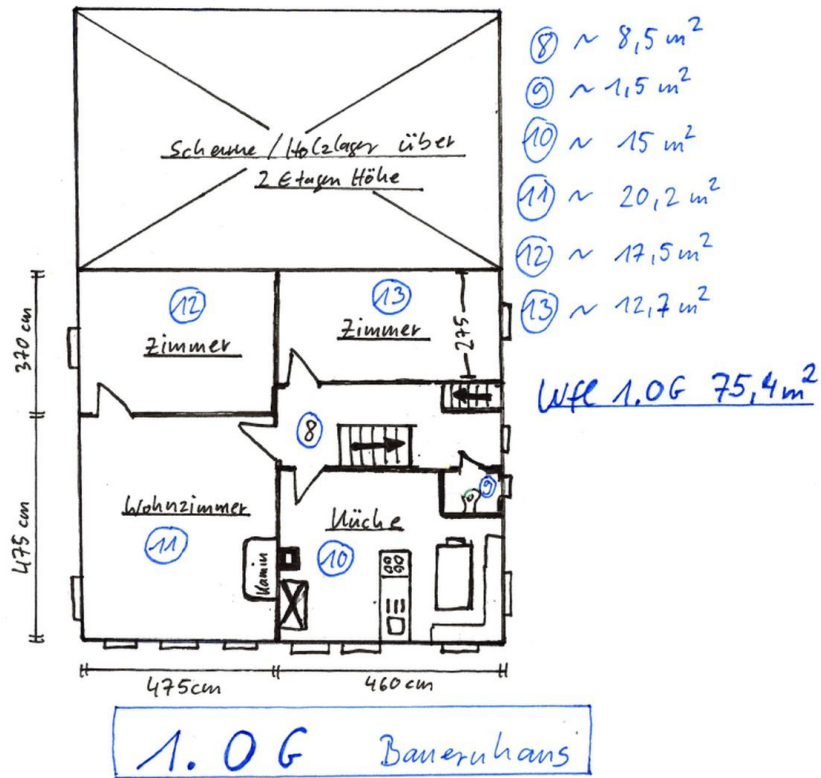 Scheune / Holzlager über
2 Etagen Höhe
⑧ ~ 8,5 m²
⑨ ~ 1,5 m²
⑩ ~ 15 m²
⑪ ~ 20,2 m²
⑫ ~ 17,5 m²
⑬ ~ 12,7 m²
Wfl 1.OG 75,4 m²
370 cm
⑫
Zimmer
⑬
Zimmer
275
⑧
475 cm
Wohnzimmer
⑪
Kamin
Küche
⑩
⑨
475 cm
460 cm
1. OG Bauernhaus